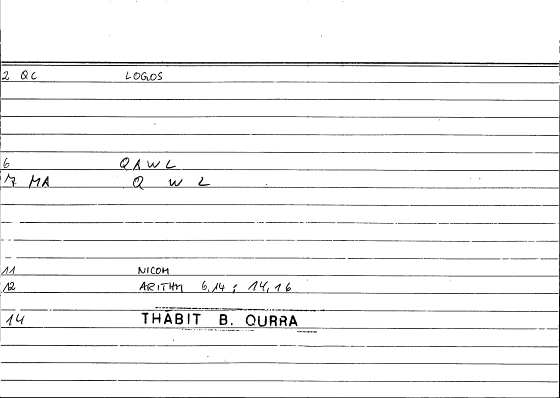 2 QC LOGOS
6 QAWL
7 MA Q W L
11 NICOM
12 ARITHM 6,14 ; 14,16
14 THABIT B. QURRA